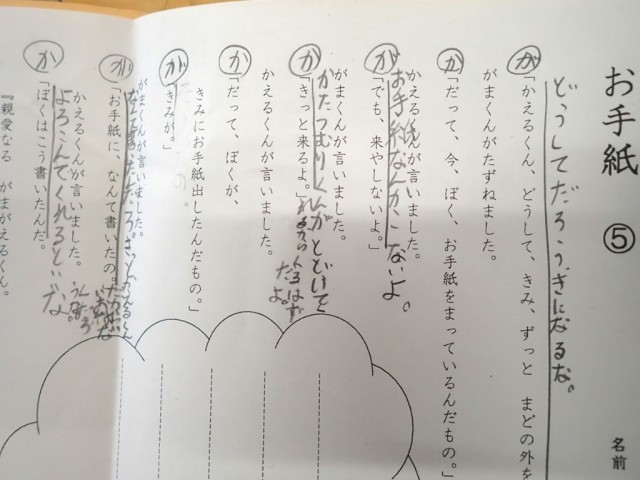 お手紙 ⑤
名前
どうしてだろう、きになるな。
が「かえるくん、どうして、きみ、ずっと まどの外を
がまくんがたずねました。
か「だって、今、ぼく、お手紙をまっているんだもの。」
かえるくんが言いました。
お手紙なんかこないよ。
が「でも、来やしないよ。」
がまくんが言いました。
かたつむりくんがとどいて
くるはず
だよ。
か「きっと来るよ。」
かえるくんが言いました。
か「だって、ぼくが、
きみにお手紙出したんだもの。」
が「きみが。」
がまくんが言いました。
が「お手紙に、なんて書いたの。」
かえるくんが言いました。
よろこんでくれるといいな
か「ぼくはこう書いたんだ。
『親愛なる がまがえるくん。